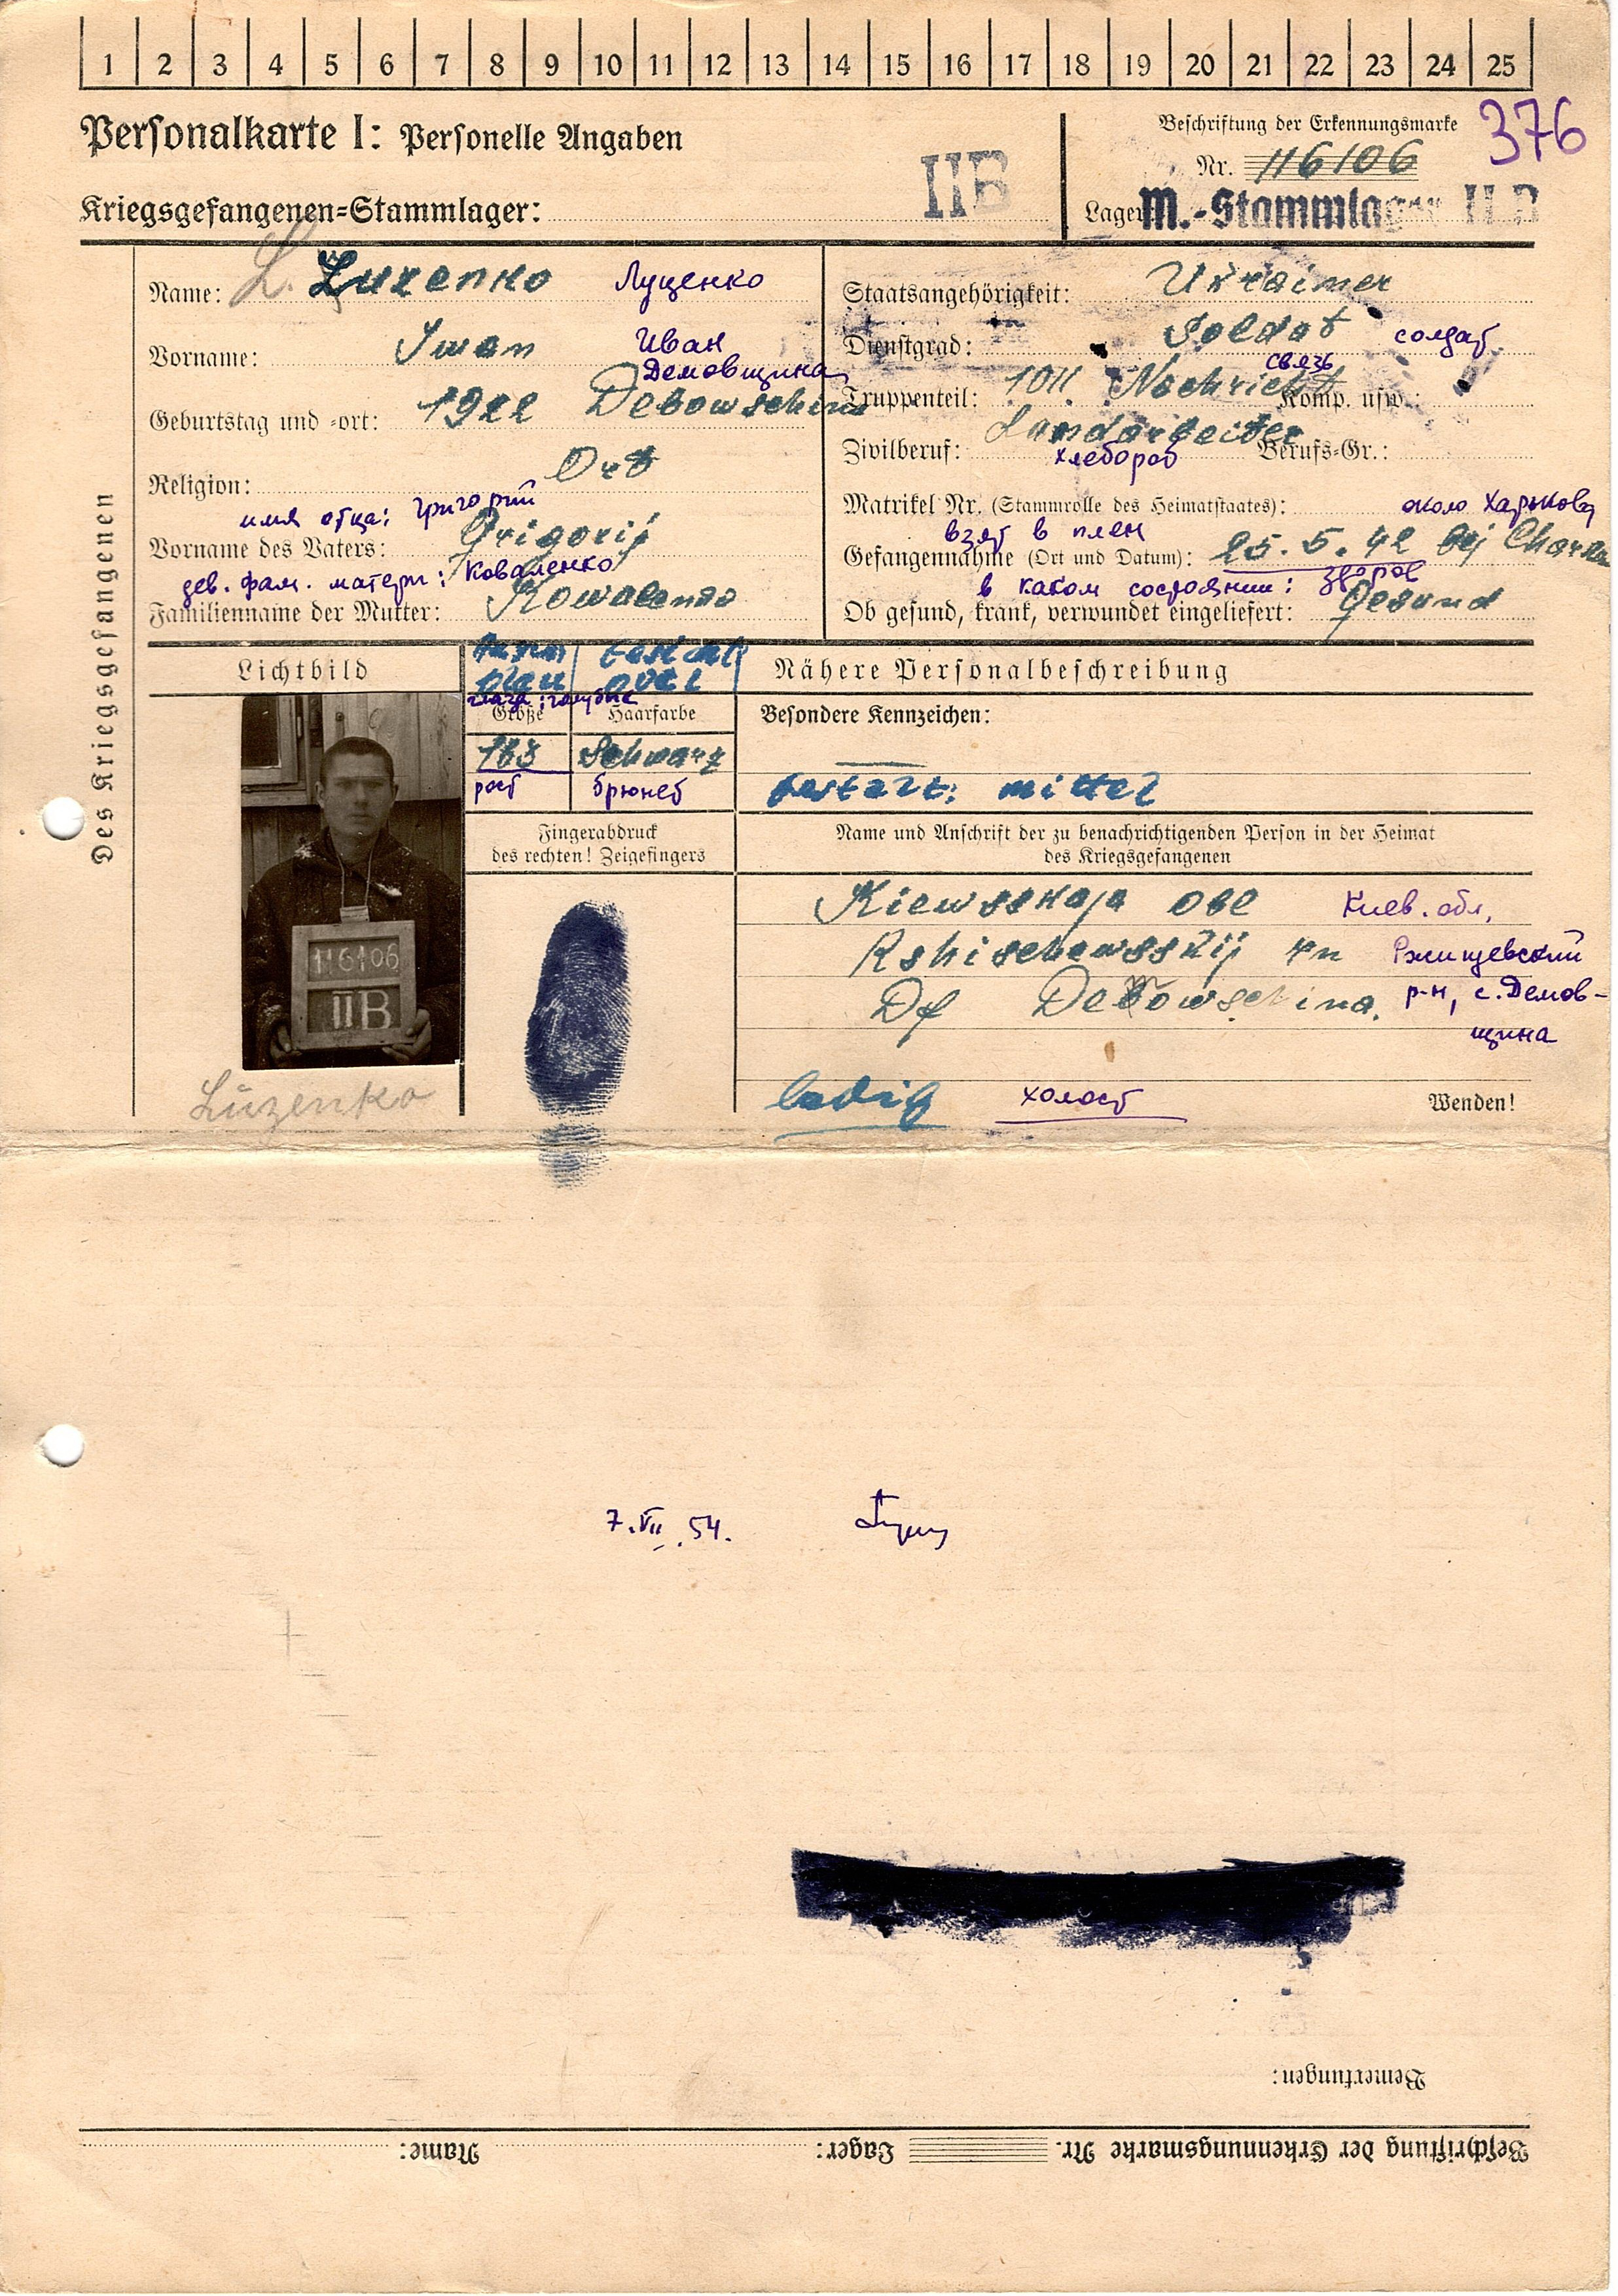 1 2 3 4 5 6 7 8 9 10 11 12 13 14 15 16 17 18 19 20 21 22 23 24 25
Personalkarte I: Personelle Angaben
Beschriftung der Erkennungsmarke
376
Nr. 116106
Kriegsgefangenen-Stammlager: IIB
Lager: M.-Stammlager II B
Des Kriegsgefangenen
Name: L. Luzenko Луценко
Vorname: Iwan Иван
Демовщина
Geburtstag und -ort: 1922 Debowschina
Religion: Ort
имя отца: Григорий
Vorname des Vaters: Grigorij
дев. фам. матери: Коваленко
Familienname der Mutter: Kowalenko
Staatsangehörigkeit: Ukrainer
Dienstgrad: Soldat солдат
связь
Truppenteil: 1011 Nachricht Komp. usw.:
Zivilberuf: Landarbeiter Berufs-Gr.:
хлебороб
Matrikel Nr. (Stammrolle des Heimatstaates):
взят в плен около Харькова
Gefangennahme (Ort und Datum): 25.5.42 bej Charkow
в каком состоянии: здоров
Ob gesund, krank, verwundet eingeliefert: Gesund
Lichtbild
Augen Gesicht
blau oval
глаза: голубые
Größe Haarfarbe
163 Schwarz
рост брюнет
Fingerabdruck
des rechten! Zeigefingers
Nähere Personalbeschreibung
Besondere Kennzeichen:
Gestalt: mittel
Name und Anschrift der zu benachrichtigenden Person in der Heimat
des Kriegsgefangenen
Kiewsskaja obl Киев. обл,
Rshischewsskij rn Ржищевский
Df Debowschina. р-н, с. Демов-
щина
ledig холост
Wenden!
116106
IIB
Luzenko
7.VII.54.
Bemerkungen:
Beschriftung der Erkennungsmarke Nr. Lager: Name: